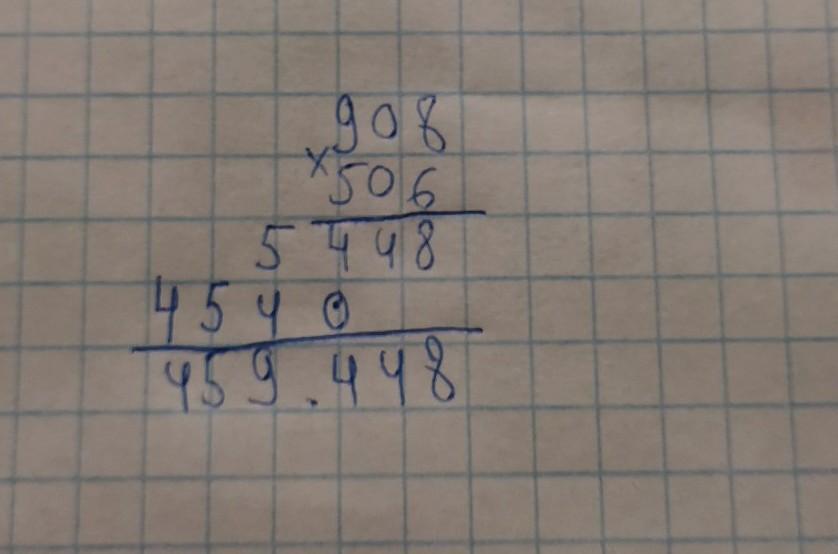 908
×
506
5448
4540
459.448